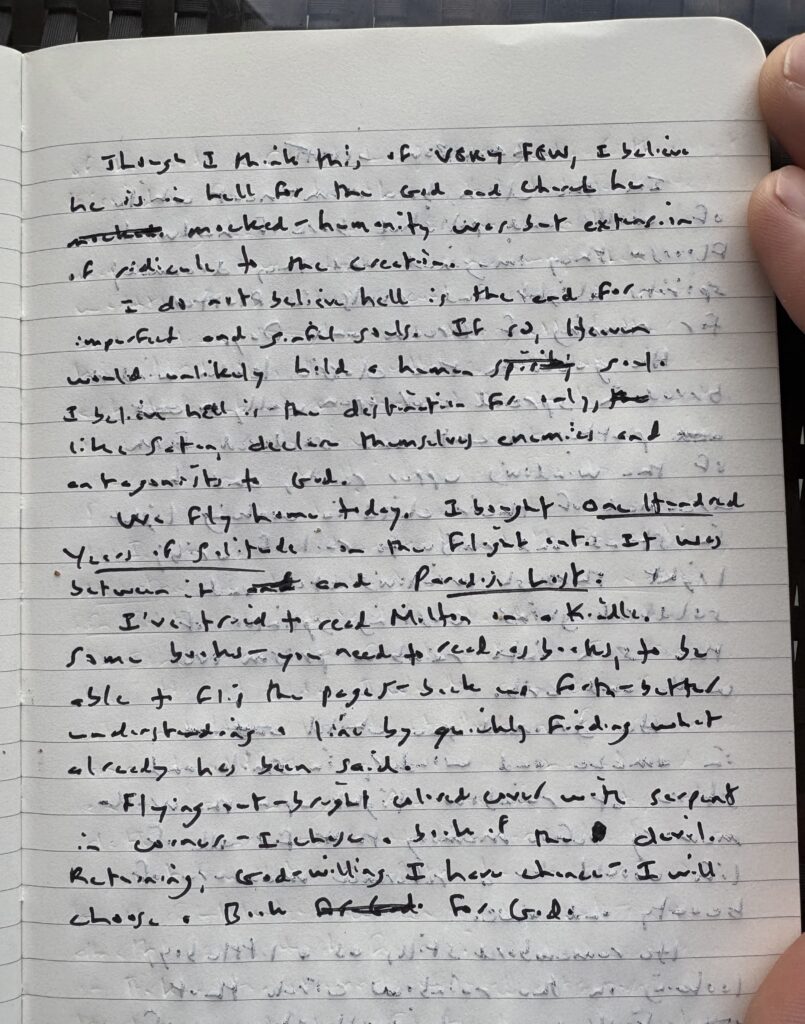 Though I think this of VERY FEW, I believe
he is in hell for the God and church he
mocked - humanity was but extension
of ridicule to the creation.
I do not believe hell is the end for
imperfect and sinful souls. If so, Heaven
would unlikely hold a human soul.
I believe hell is the destination for only,
like Satan, declare themselves enemies and
antagonists to God.
We fly home today. I bought One Hundred
Years of Solitude on the flight out. It was
between it and Paradise Lost.
I've tried to read Milton on a Kindle.
Some books - you need to read as books, to be
able to flip the pages - back and forth - better
understanding a line by quickly finding what
already has been said.
Flying out - bright colored cover with serpent
in corner - I chose a book of the devil.
Returning, God-willing I have chance - I will
choose a Book for God.